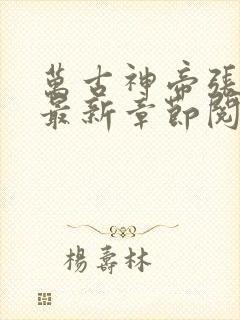 萬古神帝張
最新章節閱
楊壽林